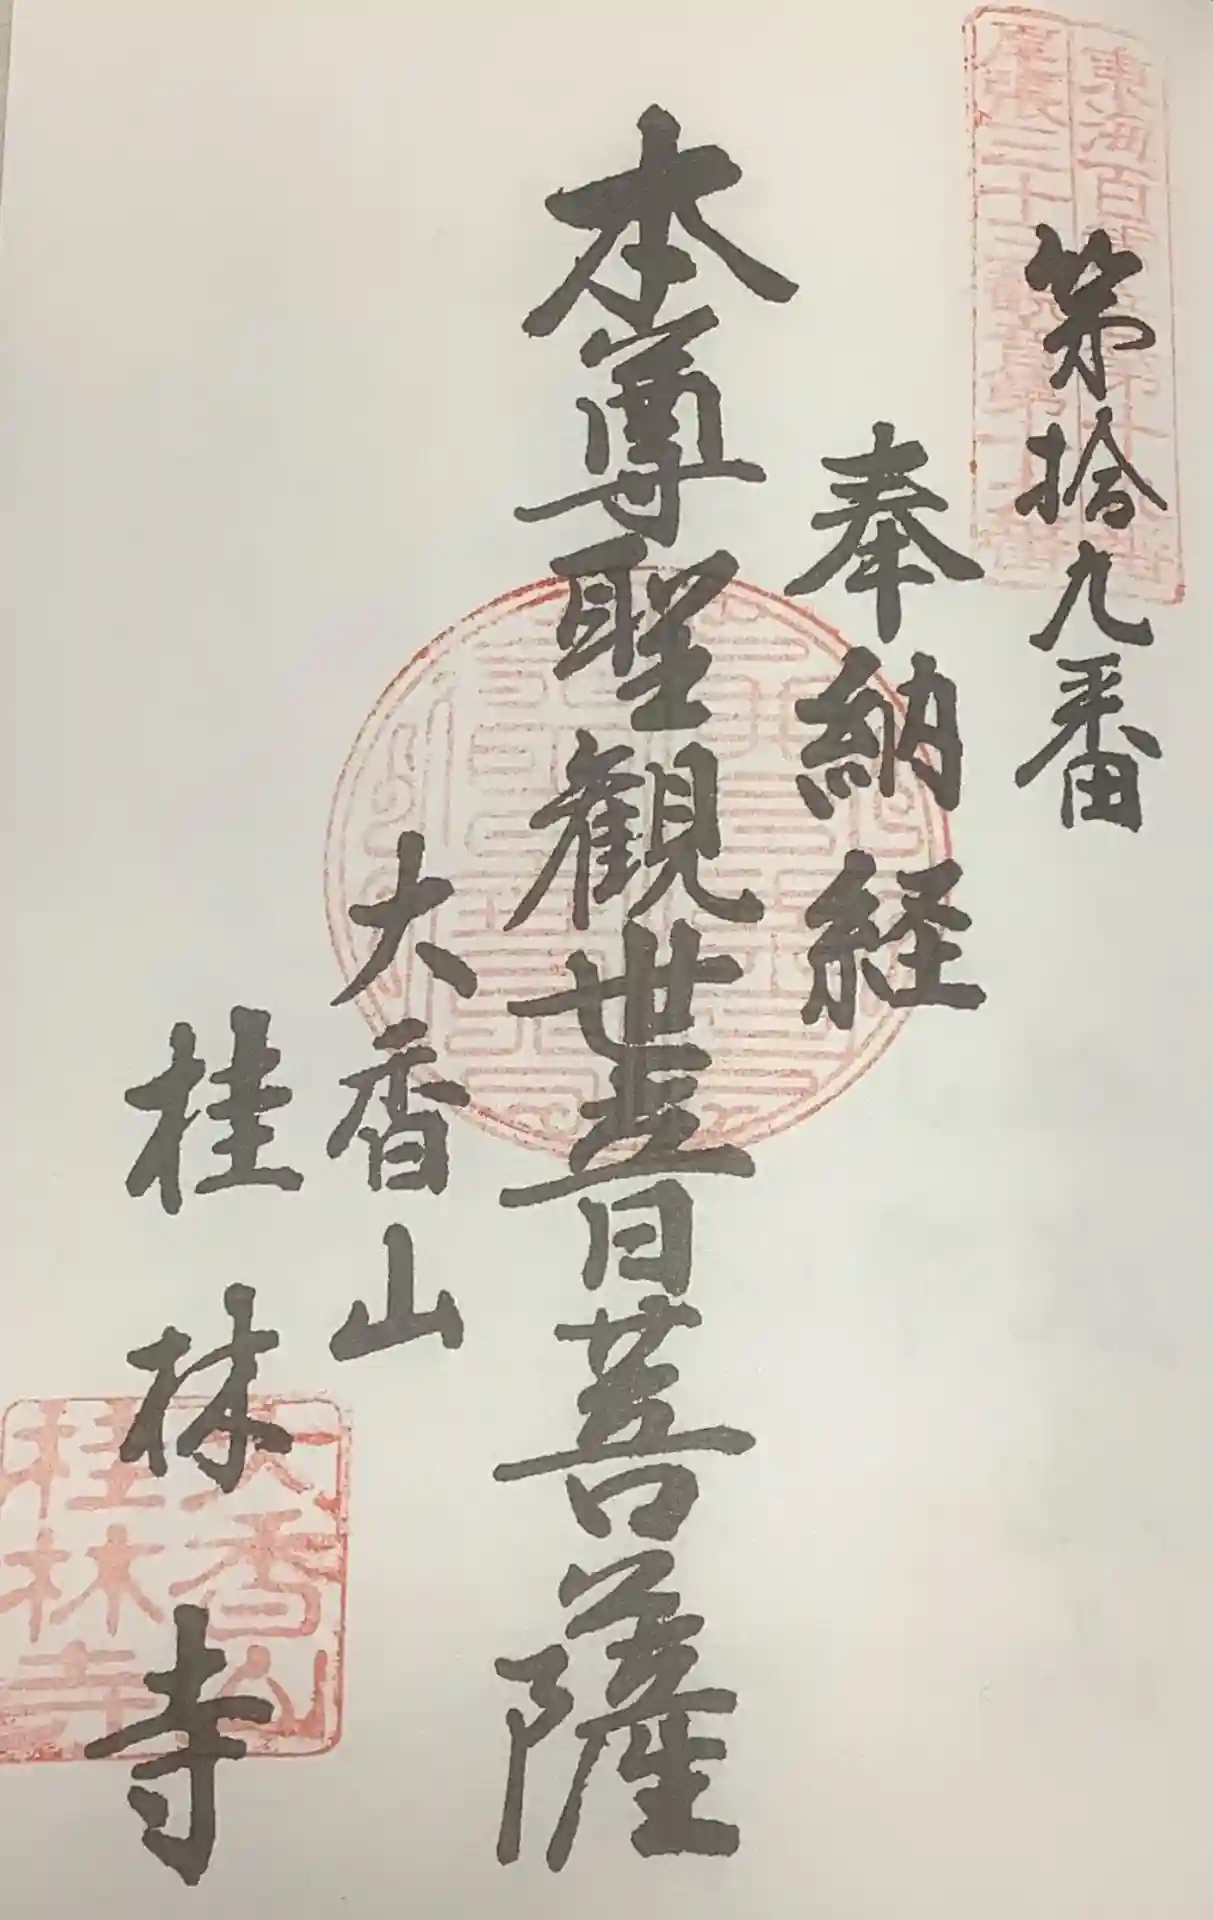 第拾九番
奉納経
本尊聖観世音菩薩
大香山
桂林寺
尾張三十三観音第十九番
大香山
桂林寺